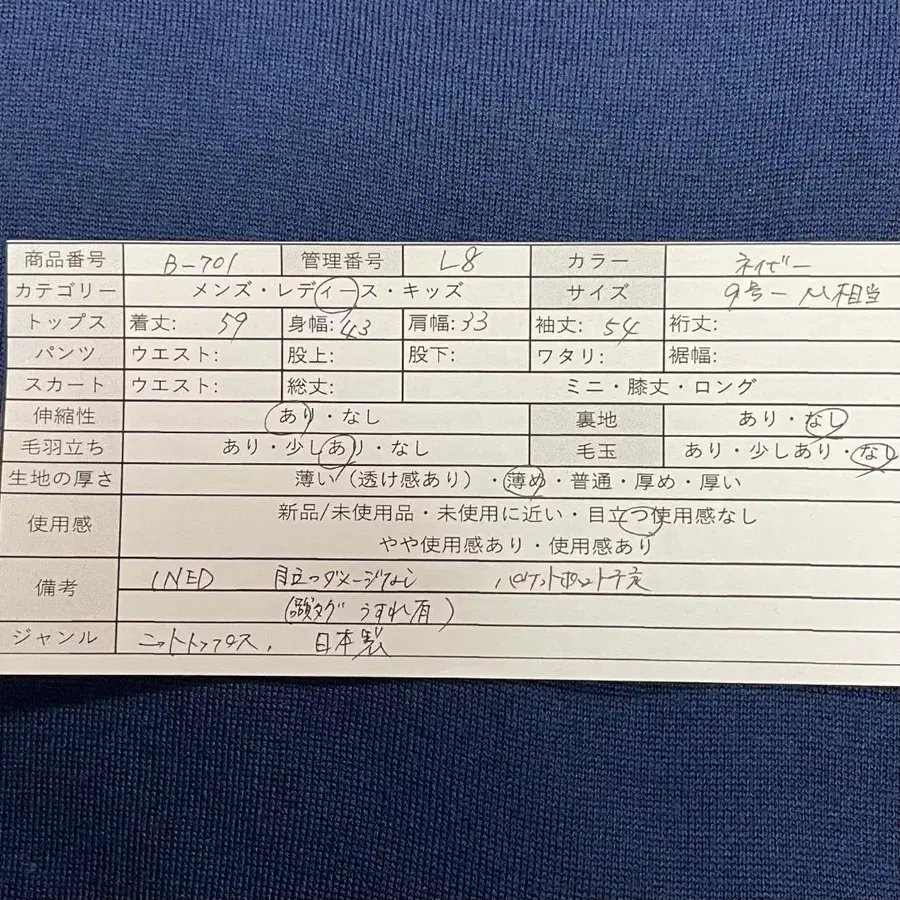 商品番号 B-701 管理番号 L8 カラー ネイビー
カテゴリー メンズ・レディース・キッズ サイズ 9号-M相当
トップス 着丈: 59 身幅: 43 肩幅: 33 袖丈: 54 裄丈:
パンツ ウエスト: 股上: 股下: ワタリ: 裾幅:
スカート ウエスト: 総丈: ミニ・膝丈・ロング
伸縮性 あり・なし 裏地 あり・なし
毛羽立ち あり・少しあり・なし 毛玉 あり・少しあり・なし
生地の厚さ 薄い(透け感あり)・薄め・普通・厚め・厚い
使用感 新品/未使用品・未使用に近い・目立つ使用感なし
やや使用感あり・使用感あり
備考 INED 目立つダメージなし
タグ うすれ有)
ジャンル ニットトップス, 日本製